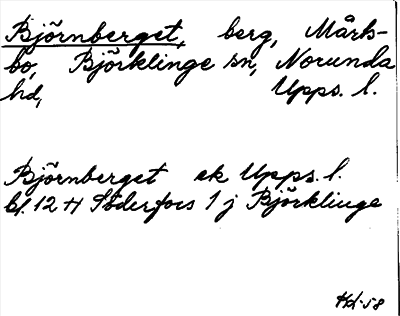 Björnberget, berg, Mårks-
bo, Björklinge sn, Norunda
hd, Upps. l.
Björnberget ek Upps. l.
bl. 12 H Söderfors 1 j Björklinge
HH-58